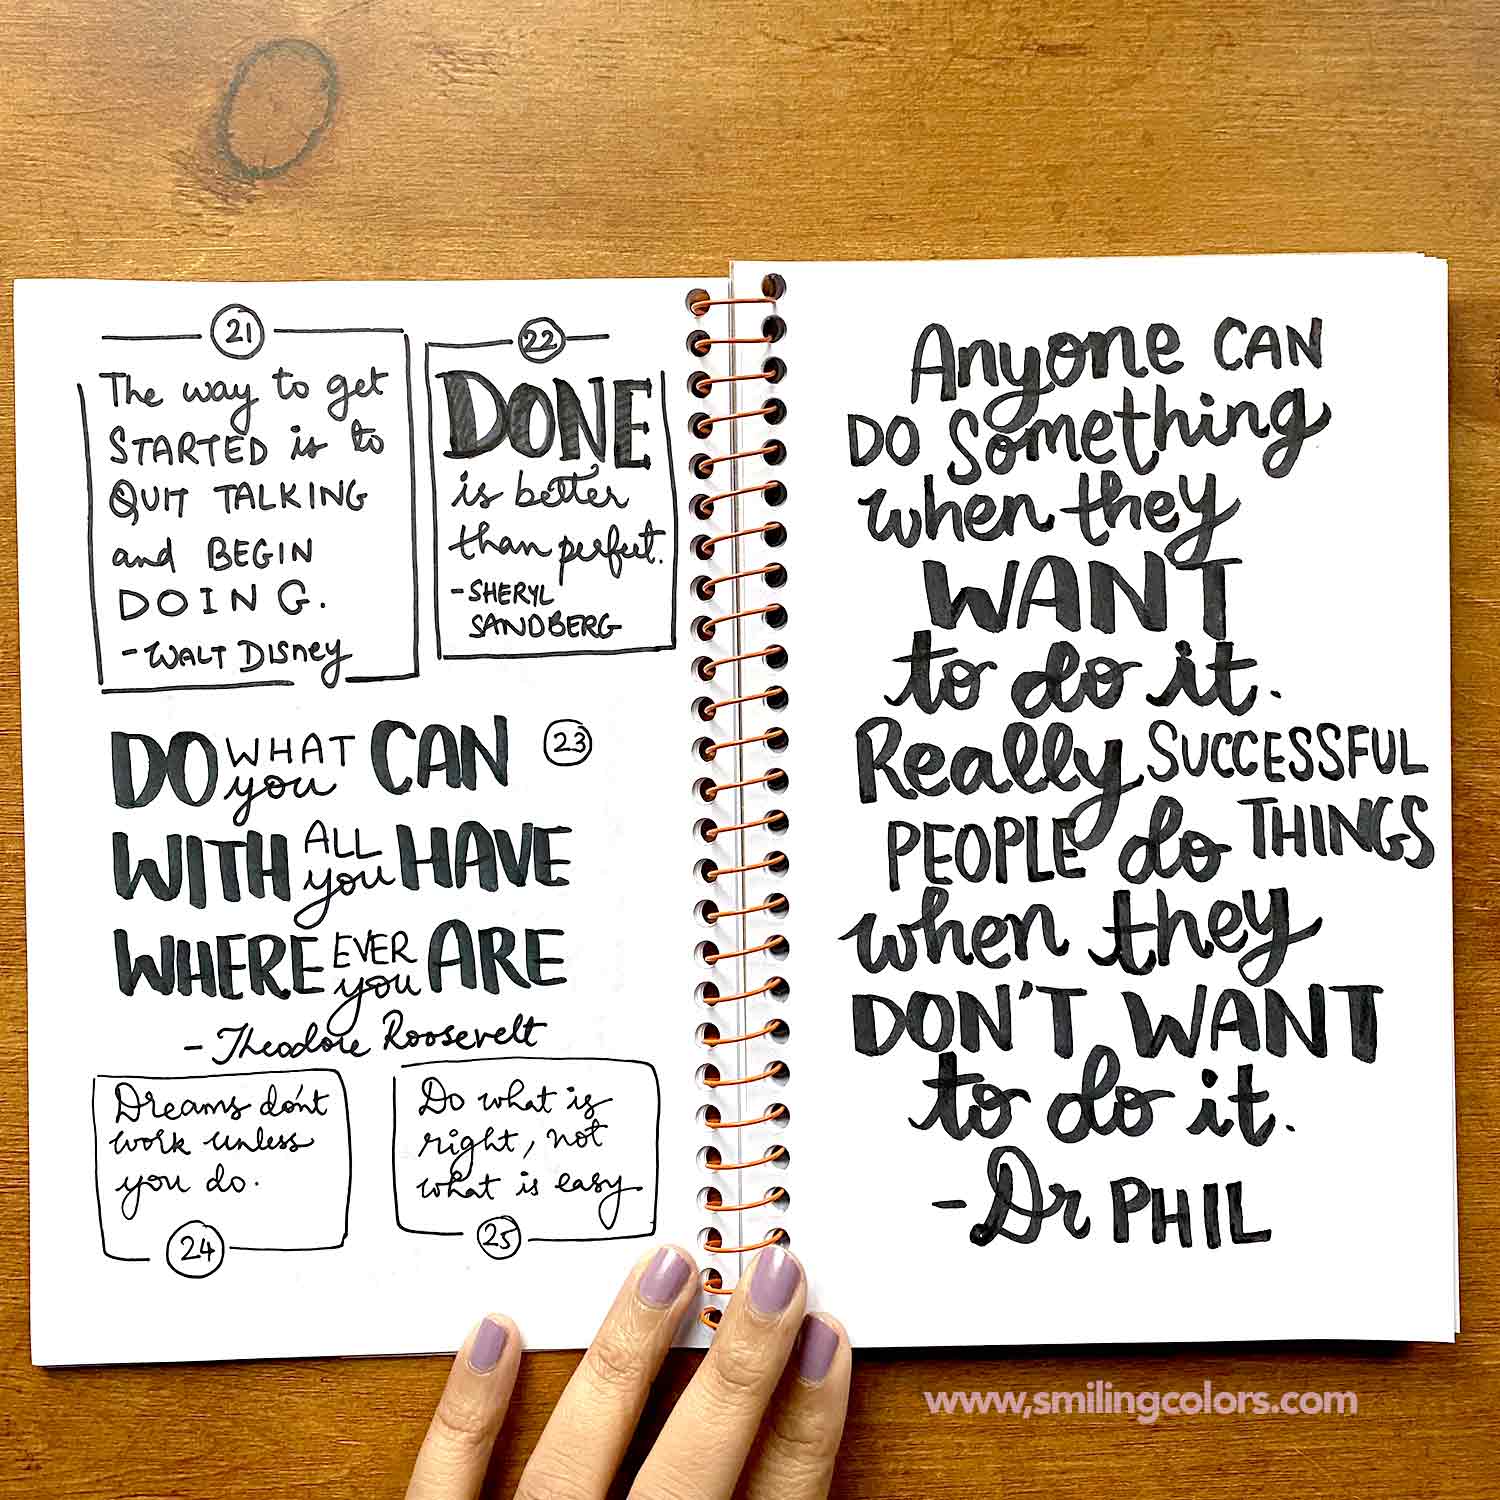 21
The way to get
STARTED is to
QUIT TALKING
and BEGIN
DOING.
-WALT DISNEY
22
DONE
is better
than perfect.
-SHERYL
SANDBERG
DO WHAT you CAN
23
WITH ALL you HAVE
WHERE EVER you ARE
- Theodore Roosevelt
Dreams don't
work unless
you do.
24
Do what is
right, not
what is easy.
25
Anyone CAN
DO Something
when they
WANT
to do it.
Really SUCCESSFUL
PEOPLE do THINGS
when they
DON'T WANT
to do it.
-Dr PHIL
www.smilingcolors.com